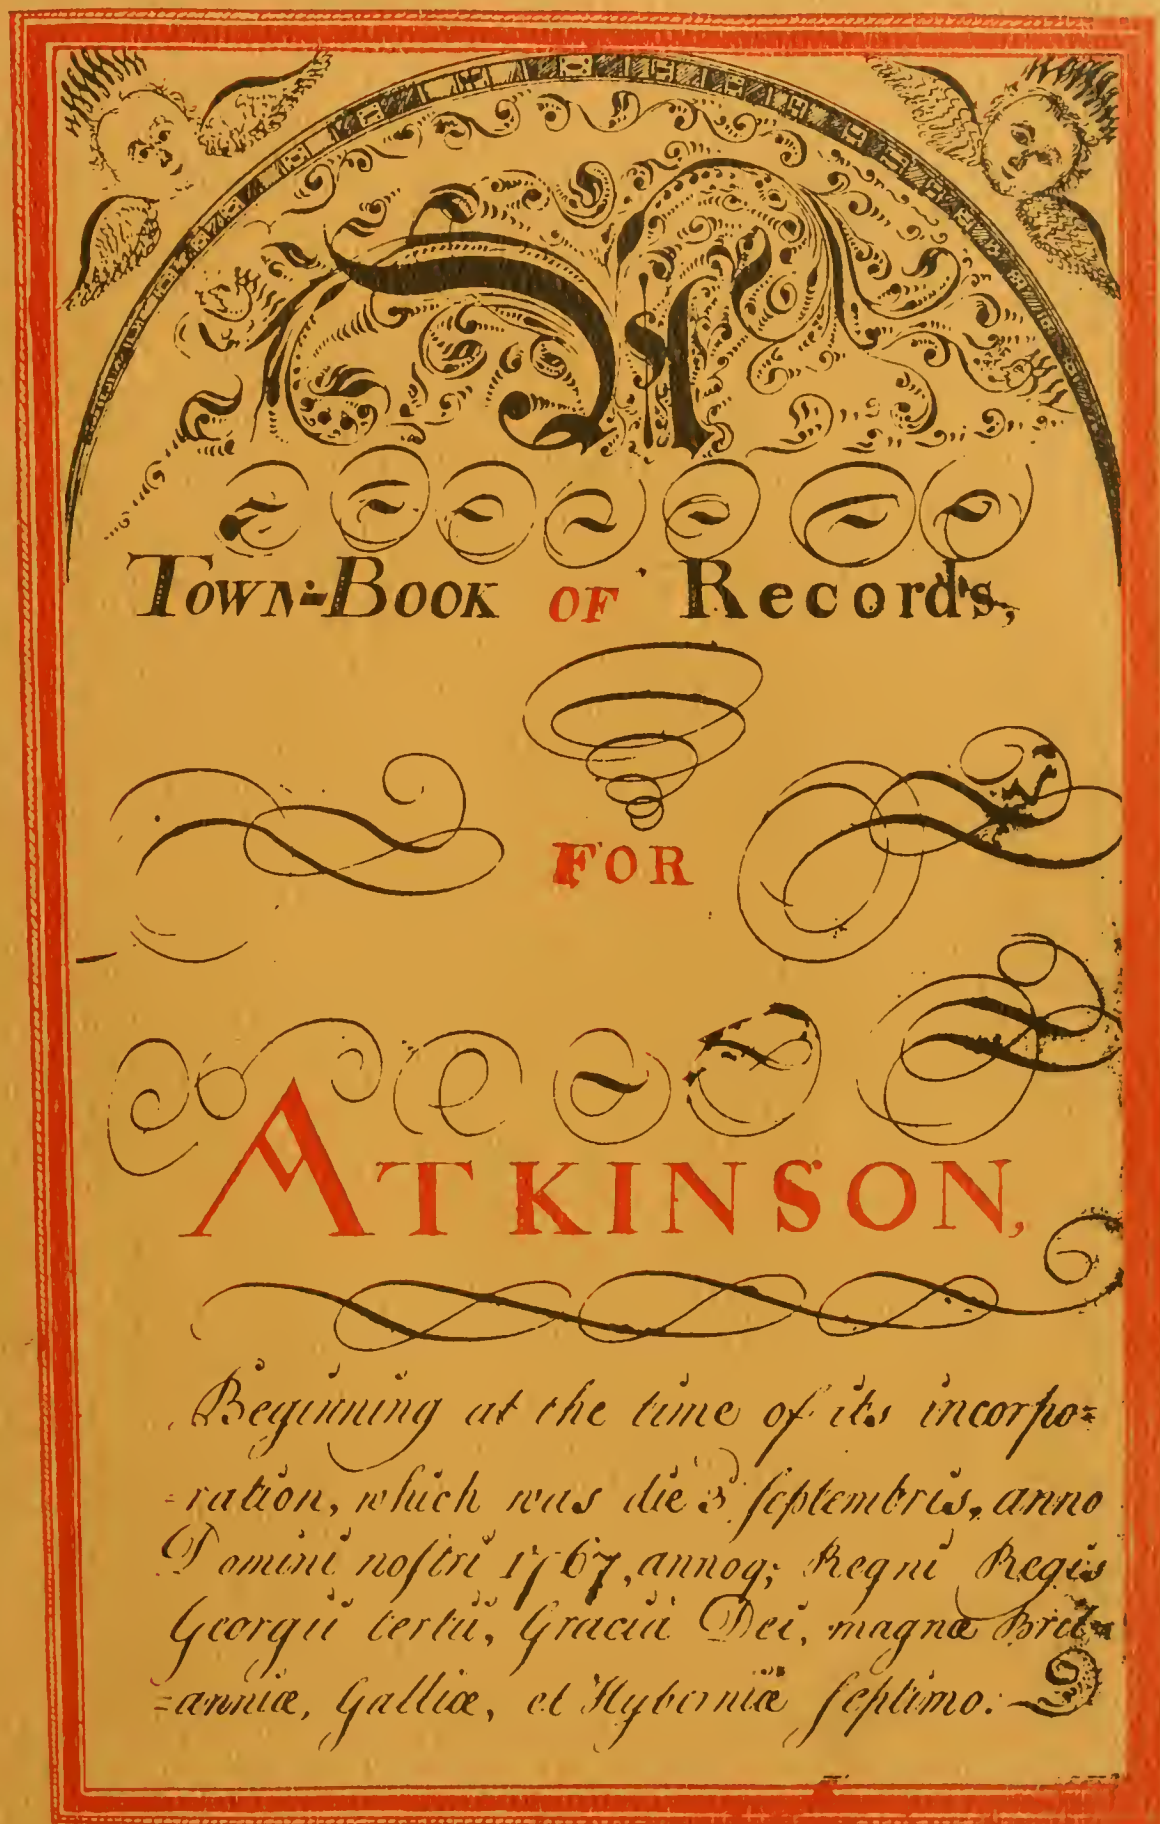 A
Town=Book OF Records,
FOR
ATKINSON,
Beginning at the time of its incorpo=
=ration, which was die 3 ſeptembris, anno
Domini noſtri 1767, annoq; Regni Regis
Georgii tertii, Gracia Dei, magnæ Brit=
=anniæ, Galliæ, et Hyberniæ ſeptimo.